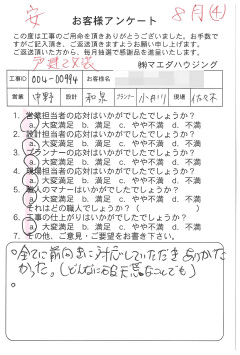 安
8月(4)
お客様アンケート
この度は工事のご用命を頂きありがとうございました。お手数で
すがご記入頂き、ご返送頂きますようお願い申し上げます。
ご返送頂いた方から、毎月抽選で感謝品を進呈しております。
(株)マエダハウジング
工事ID 004-00994 お客様名
営業 中野 設計 和泉 プランナー 小川 現場 佐々木
1. 営業担当者の応対はいかがでしたでしょうか?
a. 大変満足 b. 満足 c. やや不満 d. 不満
2. 設計担当者の応対はいかがでしたでしょうか?
a. 大変満足 b. 満足 c. やや不満 d. 不満
3. プランナーの応対はいかがでしたでしょうか?
a. 大変満足 b. 満足 c. やや不満 d. 不満
4. 現場担当者の応対はいかがでしたでしょうか?
a. 大変満足 b. 満足 c. やや不満 d. 不満
5. 職人のマナーはいかがでしたでしょうか?
a. 大変満足 b. 満足 c. やや不満 d. 不満
それはどの職人でしょうか?( )
6. 工事の仕上がりはいかがでしたでしょうか?
a. 大変満足 b. 満足 c. やや不満 d. 不満
7. その他、ご意見・ご要望をお書き下さい。
全てに前向きに対応していただきありがた
かった。(どんなに
なことでも)